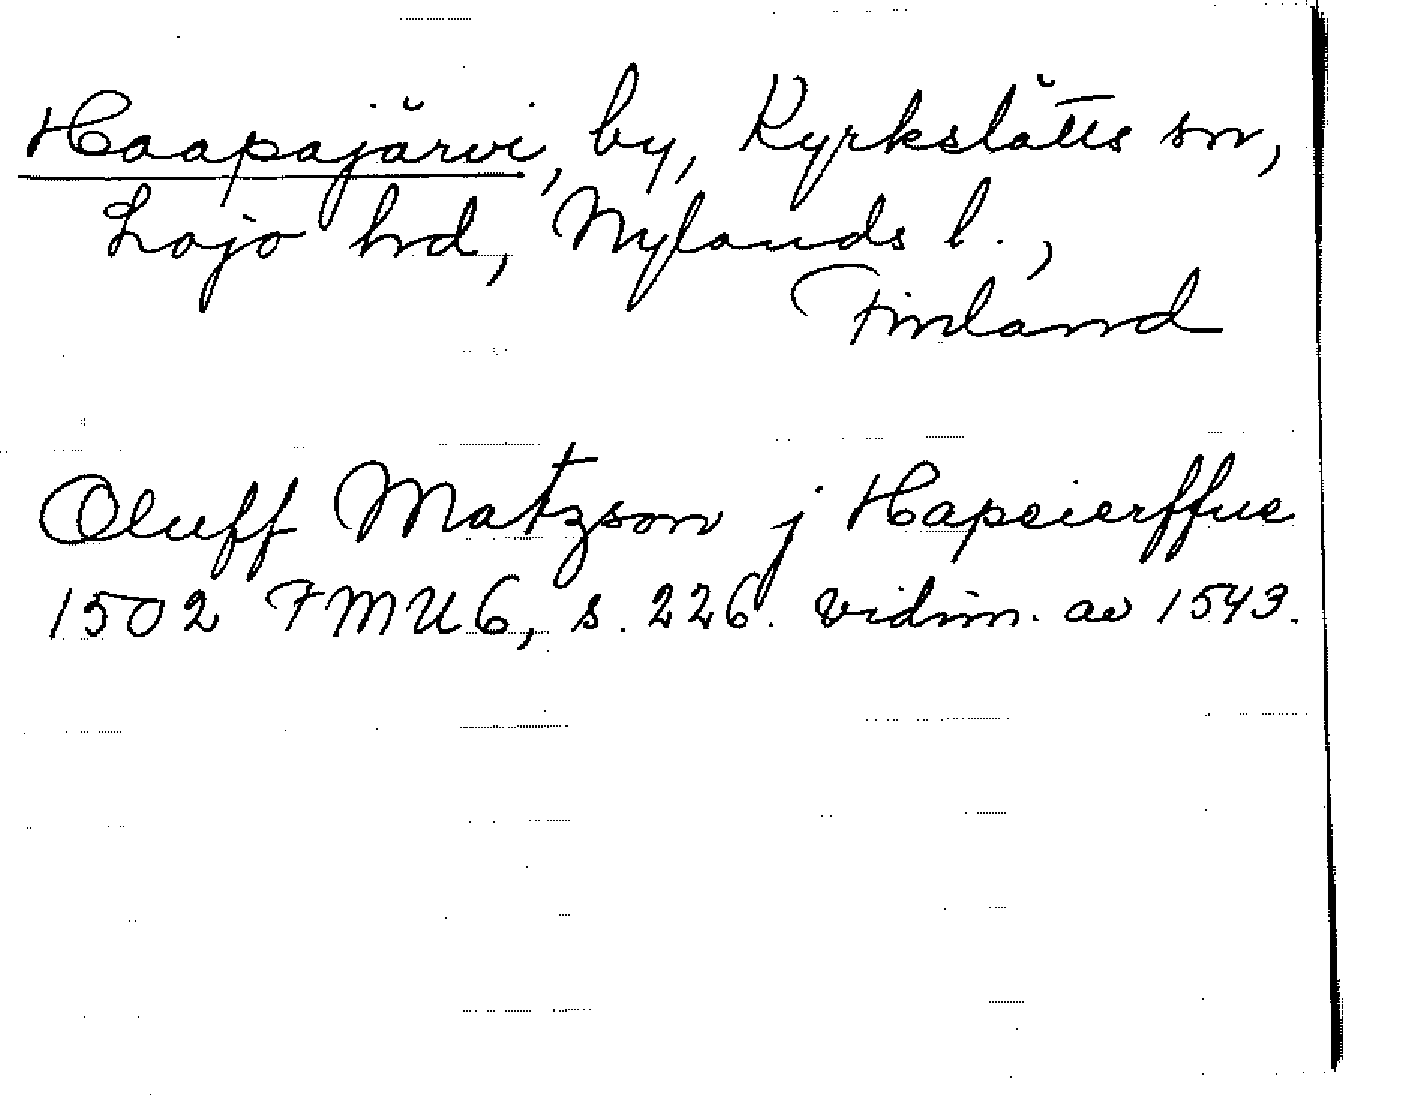 Haapajärvi, by, Kyrkslätts sn,
Lojo hrd, Nylands l.,
Finland
Oluff Matzson j Hapeierffue
1502 FMU6, s. 226. vidim. av 1543.